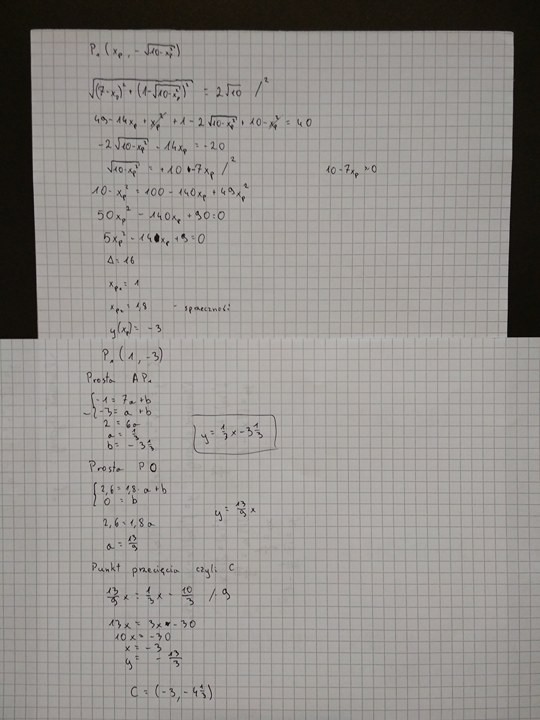 P₁ (xₚ, -√(10-xₚ²))
√((7-xₚ)² + (1-√(10-xₚ²))²) = 2√10 /²
49-14xₚ + xₚ² + 1 - 2√(10-xₚ²) + 10 - xₚ² = 40
-2√(10-xₚ²) - 14xₚ = -20
√(10-xₚ²) = +10-7xₚ /² 10-7xₚ ≥0
10-xₚ² = 100 - 140xₚ + 49xₚ²
50xₚ² - 140xₚ + 90=0
5xₚ² - 14xₚ + 9=0
Δ=16
xₚ₁ = 1
xₚ₂ = 1,8 - sprzeczność
y(xₚ) = -3
P₁ (1, -3)
Prosta AP₁
-1 = 7a + b
-3 = a + b
2 = 6a
a = 1/3
b = -3 1/3
y = 1/3 x - 3 1/3
Prosta PO
2,6 = 1,8·a + b
0 = b
y = 13/9 x
2,6 = 1,8a
a = 13/9
Punkt przecięcia czyli C
13/9 x = 1/3 x - 10/3 /·9
13x = 3x - 30
10x = -30
x = -3
y = - 13/3
C = (-3, -4 1/3)